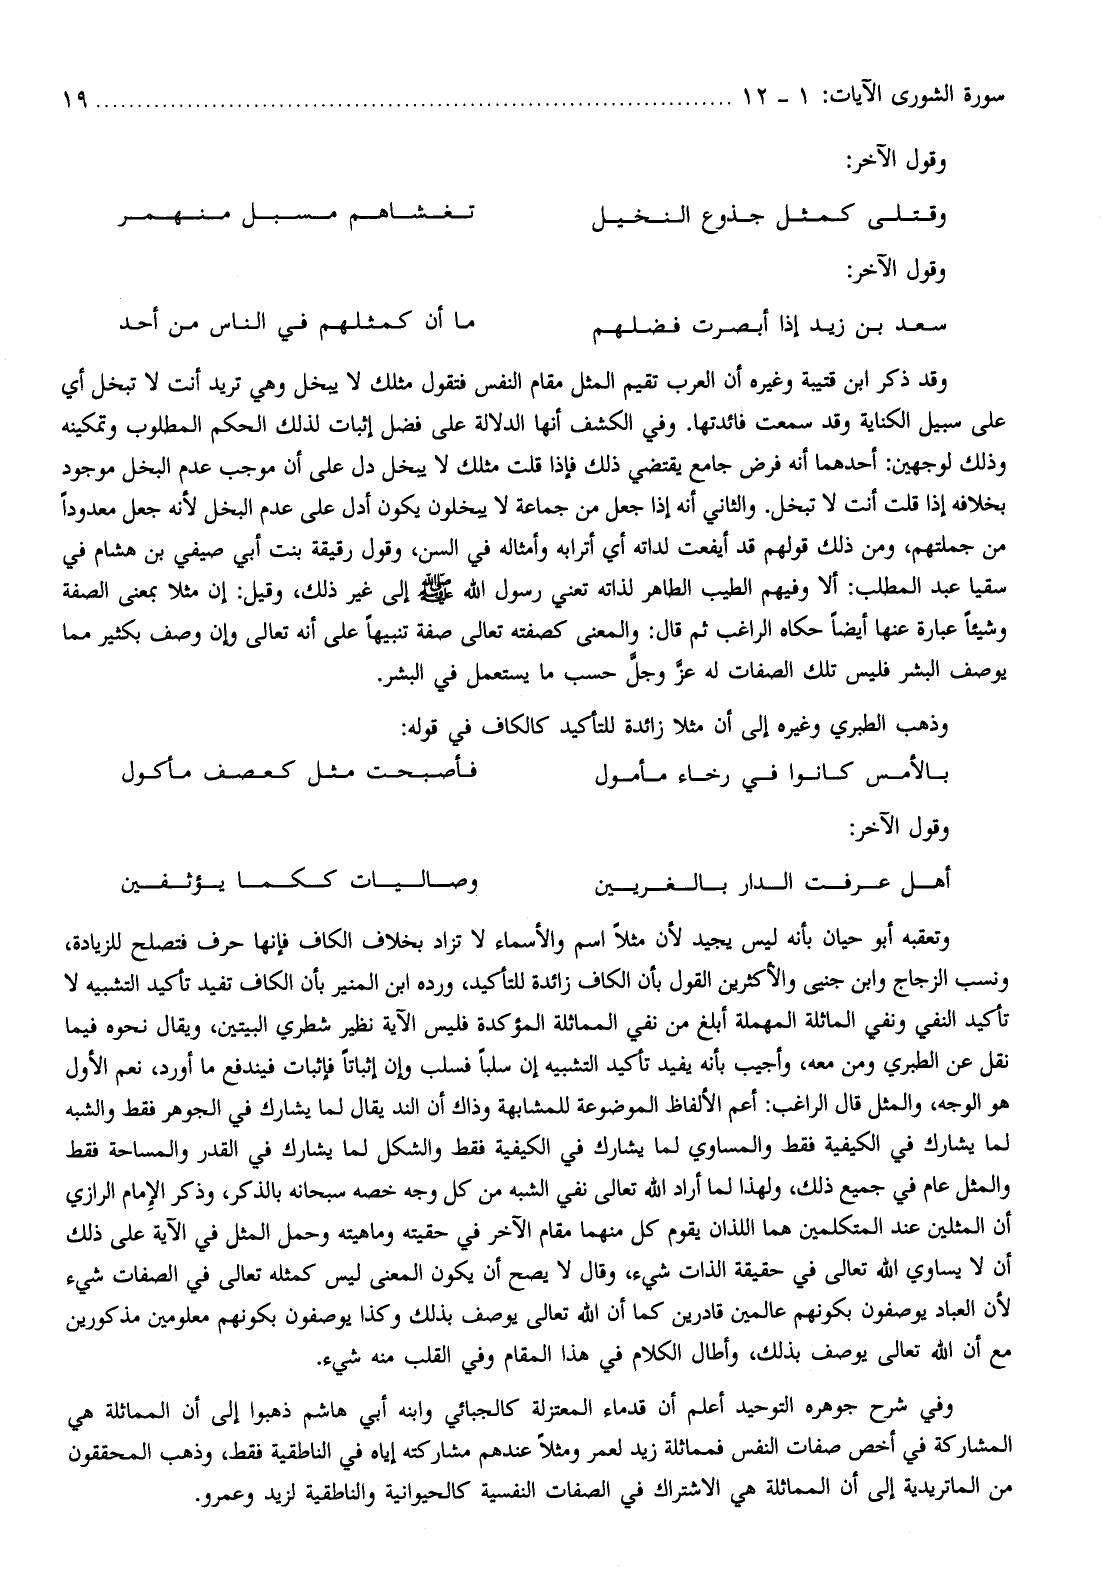 سورة الشورى الآيات: ١ - ١٢ ........................................................................... ١٩
وقول الآخر:
وقتلى كمثل جذوع النخيل تغشاهم مسبل منهمر
وقول الآخر:
سعد بن زيد إذا أبصرت فضلهم ما أن كمثلهم في الناس من أحد
وقد ذكر ابن قتيبة وغيره أن العرب تقيم المثل مقام النفس فتقول مثلك لا يبخل وهي تريد أنت لا تبخل أي
على سبيل الكناية وقد سمعت فائدتها. وفي الكشف أنها الدلالة على فضل إثبات لذلك الحكم المطلوب وتمكينه
وذلك لوجهين: أحدهما أنه فرض جامع يقتضي ذلك فإذا قلت مثلك لا يبخل دل على أن موجب عدم البخل موجود
بخلافه إذا قلت أنت لا تبخل. والثاني أنه إذا جعل من جماعة لا يبخلون يكون أدل على عدم البخل لأنه جعل معدوداً
من جملتهم، ومن ذلك قولهم قد أيفعت لداته أي أترابه وأمثاله في السن، وقول رقيقة بنت أبي صيفي بن هشام في
سقيا عبد المطلب: ألا وفيهم الطيب الطاهر لذاته تعني رسول الله ﷺ إلى غير ذلك، وقيل: إن مثلا بمعنى الصفة
وشيئاً عبارة عنها أيضاً حكاه الراغب ثم قال: والمعنى كصفته تعالى صفة تنبيهاً على أنه تعالى وإن وصف بكثير مما
يوصف البشر فليس تلك الصفات له عزَّ وجلَّ حسب ما يستعمل في البشر.
وذهب الطبري وغيره إلى أن مثلا زائدة للتأكيد كالكاف في قوله:
بالأمس كانوا في رخاء مأمول فأصبحت مثل كعصف مأكول
وقول الآخر:
أهل عرفت الدار بالغريين وصاليات ككما يؤثفين
وتعقبه أبو حيان بأنه ليس يجيد لأن مثلاً اسم والأسماء لا تزاد بخلاف الكاف فإنها حرف فتصلح للزيادة،
ونسب الزجاج وابن جنيى والأكثرين القول بأن الكاف زائدة للتأكيد، ورده ابن المنير بأن الكاف تفيد تأكيد التشبيه لا
تأكيد النفي ونفي الماثلة المهملة أبلغ من نفي المماثلة المؤكدة فليس الآية نظير شطري البيتين، ويقال نحوه فيما
نقل عن الطبري ومن معه، وأجيب بأنه يفيد تأكيد التشبيه إن سلباً فسلب وإن إثباتاً فإثبات فيندفع ما أورد، نعم الأول
هو الوجه، والمثل قال الراغب: أعم الألفاظ الموضوعة للمشابهة وذاك أن الند يقال لما يشارك في الجوهر فقط والشبه
لما يشارك في الكيفية فقط والمساوي لما يشارك في الكيفية فقط والشكل لما يشارك في القدر والمساحة فقط
والمثل عام في جميع ذلك، ولهذا لما أراد الله تعالى نفي الشبه من كل وجه خصه سبحانه بالذكر، وذكر الإمام الرازي
أن المثلين عند المتكلمين هما اللذان يقوم كل منهما مقام الآخر في حقيته وماهيته وحمل المثل في الآية على ذلك
أن لا يساوي الله تعالى في حقيقة الذات شيء، وقال لا يصح أن يكون المعنى ليس كمثله تعالى في الصفات شيء
لأن العباد يوصفون بكونهم عالمين قادرين كما أن الله تعالى يوصف بذلك وكذا يوصفون بكونهم معلومين مذكورين
مع أن الله تعالى يوصف بذلك، وأطال الكلام في هذا المقام وفي القلب منه شيء.
وفي شرح جوهره التوحيد أعلم أن قدماء المعتزلة كالجبائي وابنه أبي هاشم ذهبوا إلى أن المماثلة هي
المشاركة في أخص صفات النفس فمماثلة زيد لعمر ومثلاً عندهم مشاركته إياه في الناطقية فقط، وذهب المحققون
من الماتريدية إلى أن المماثلة هي الاشتراك في الصفات النفسية كالحيوانية والناطقية لزيد وعمرو.